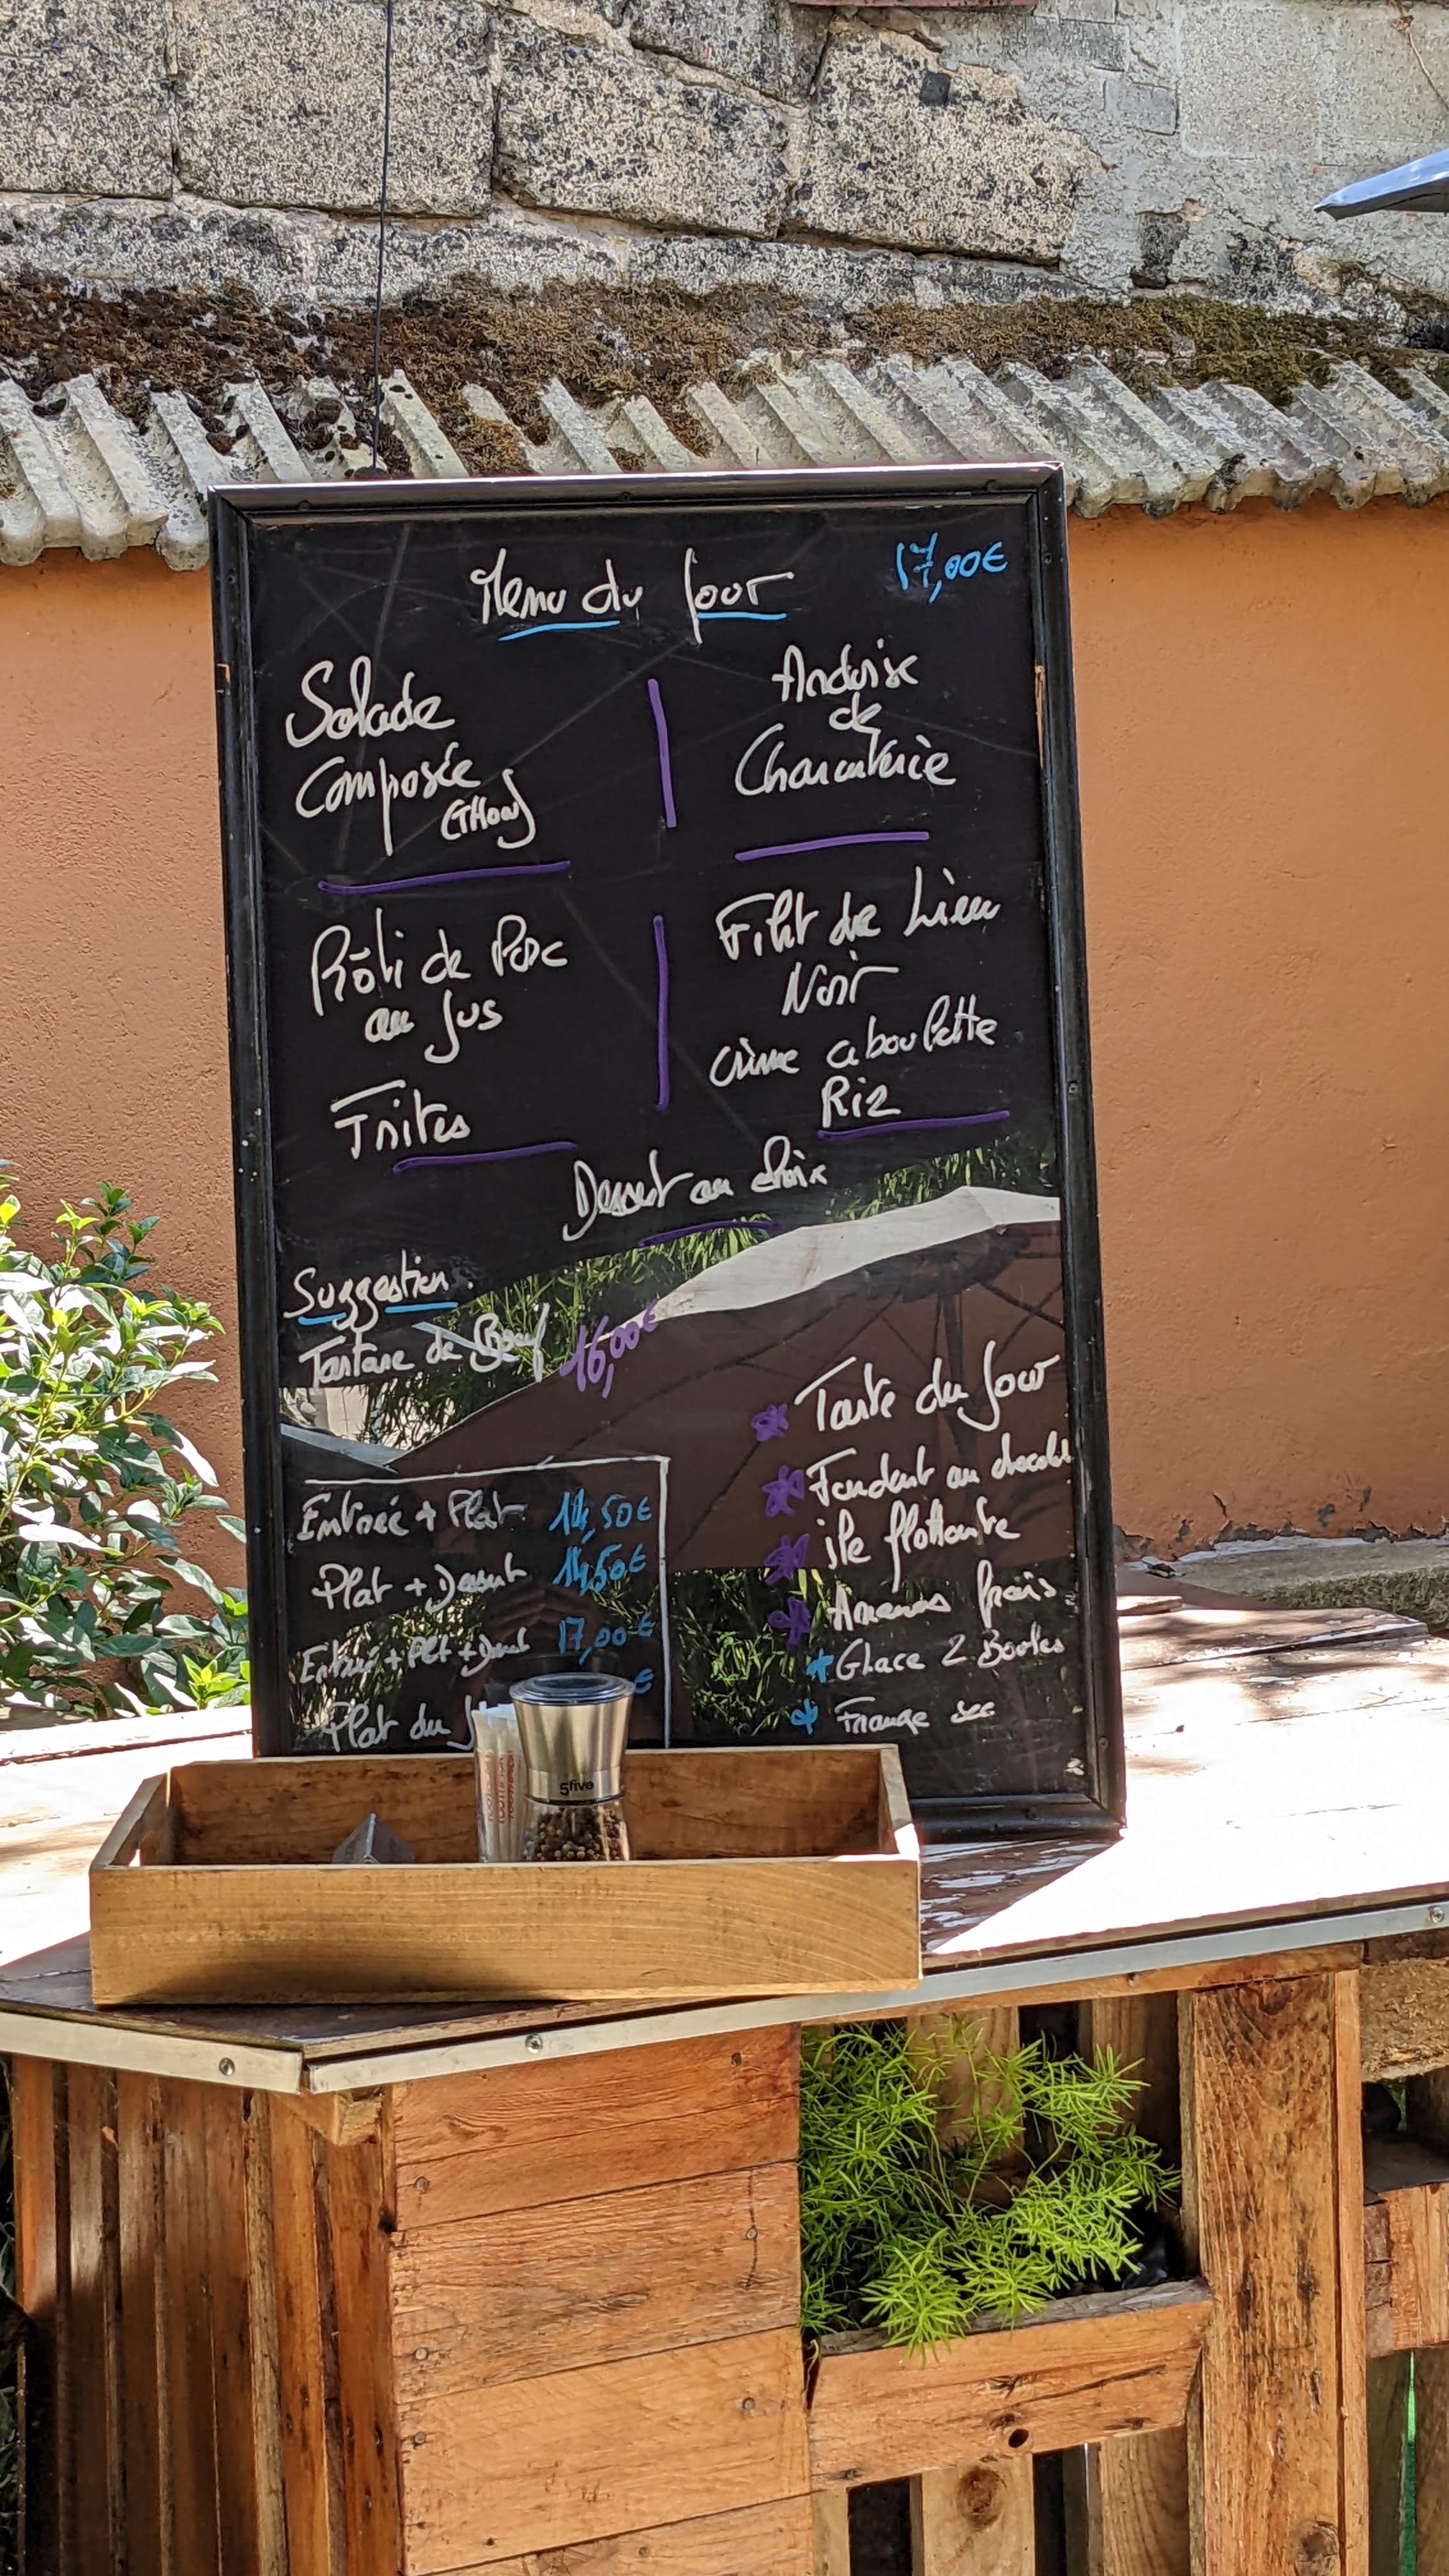 Menu du Jour
17,00€
Salade
Composée
(THON)
Ardoise
de
Charcuterie
Rôti de Porc
au Jus
Frites
Filet de Lieu
Noir
crème ciboulette
Riz
Dessert au choix
Suggestion.
Tartare de Boeuf 16,00€
Entrée + Plat 14,50€
Plat + Dessert 14,50€
Entrée + Plat + Dessert 17,00€
Plat du
€
Tarte du Jour
Fondant au chocolat
île flottante
Ananas frais
Glace 2 Boules
Fromage sec
5five